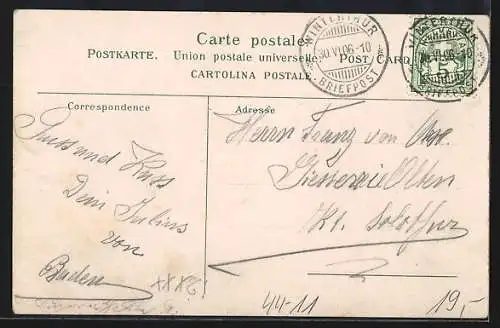 Carte postale
POSTKARTE. Union postale universelle. POST CARD
CARTOLINA POSTALE.
WINTERTHUR
30.VI.06.-10
BRIEFPOST
WINTERTHUR
BRIEFPOST
5
Correspondence
Adresse
Gruss und Kuss
Dein Julius
von
Baden
Herrn Franz von Arx.
Giesserei Olten
Kt. Solothurn
44-11
19,-